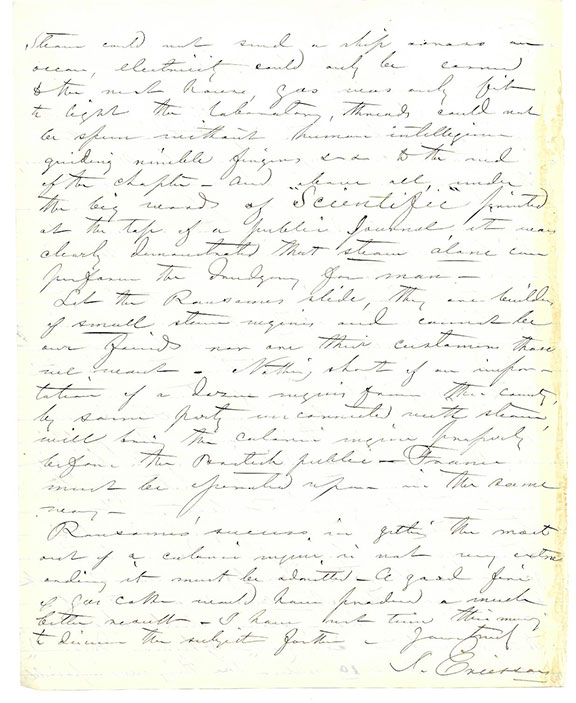 Steam could not send a ship across an
ocean, electricity could only be carried
to the next house, gas was only fit
to light the laboratory, threads could not
be spun without human intelligence
guiding nimble fingers &c &c to the end
of the chapter – And above all, under
the big words of "Scientific" printed
at the top of a public Journal it was
clearly demonstrated that steam alone can
perform the drudgery for man –
Let the Ransomes slide, they are builders
of small steam engines and cannot be
our friends nor are their customers those
we want – Nothing short of an impor-
tation of a dozen engines from this country,
by some party unconnected with steam,
will bring the caloric engine properly
before the British public – France
must be operated upon in the same
way –
Ransomes' success in getting the most
out of a caloric engine is not very extra
ordinary it must be admitted – A good fire
of gas coke would have produced a much
better result – I have not time this morng
to discuss the subject further – Yours truly
J. Ericsson